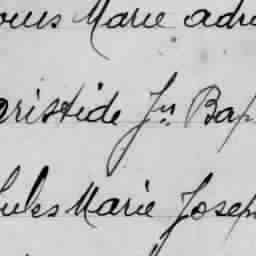 ouis Marie adr
aristide Jn Bap
Jules Marie Josep